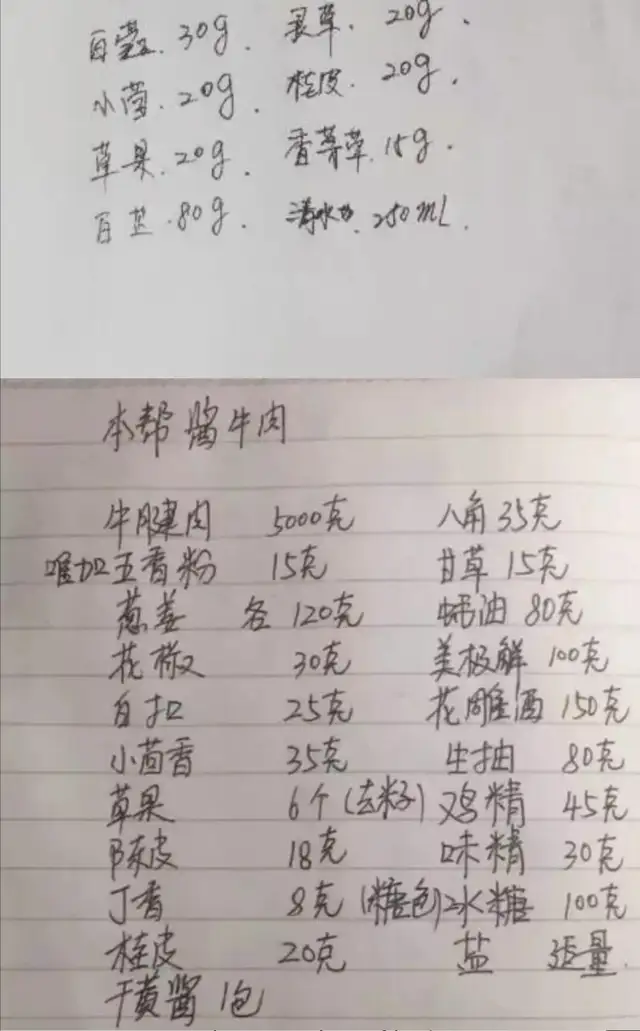 白蔻. 30g. 灵草. 20g.
小茴. 20g. 桂皮. 20g.
草果. 20g. 香茅草. 15g.
白芷. 80g. 清水 250mL.
本帮酱牛肉
牛腱肉 5000克 八角35克
味好美五香粉 15克 甘草15克
葱姜 各 120克 蚝油80克
花椒 30克 美极鲜 100克
白扣 25克 花雕酒 150克
小茴香 35克 生抽 80克
草果 6个(去籽) 鸡精 45克
陈皮 18克 味精 30克
丁香 8克 (糖色)冰糖 100克
桂皮 20克 盐 适量
干黄酱 1包